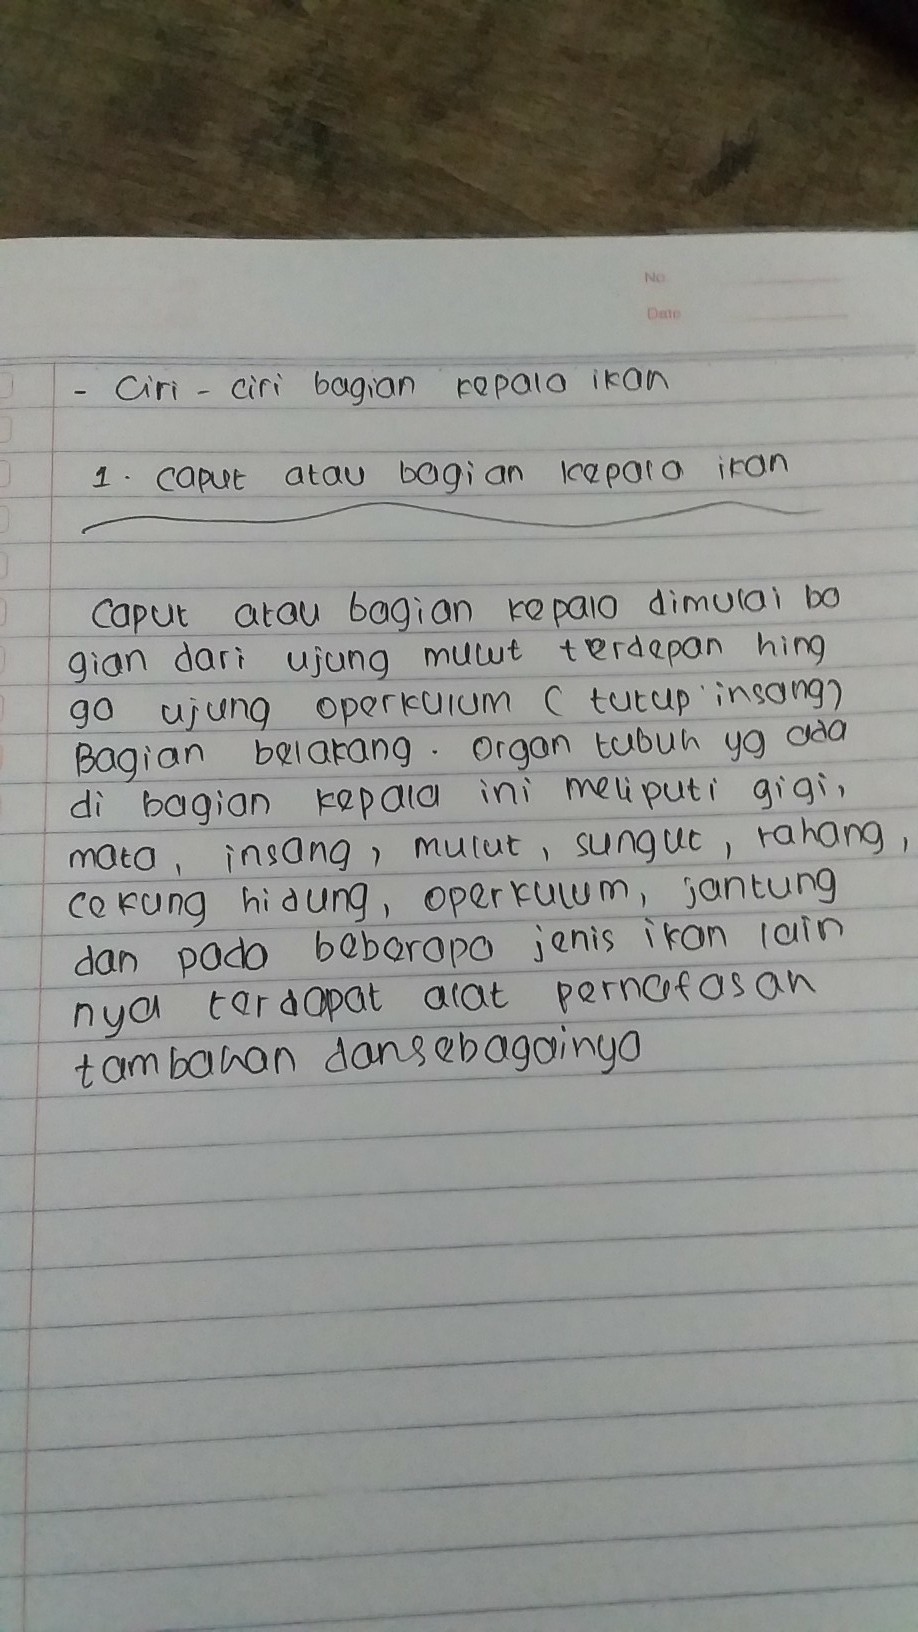 No
Date
- Ciri - ciri bagian kepala ikan
1. Caput atau bagian kepala ikan
Caput atau bagian kepala dimulai ba
gian dari ujung mulut terdepan hing
ga ujung operkulum ( tutup insang)
Bagian belakang. Organ tubuh yg ada
di bagian kepala ini meliputi gigi,
mata, insang, mulut, sungut, rahang,
cekung hidung, operkulum, jantung
dan pada beberapa jenis ikan lain
nya terdapat alat pernafasan
tambahan dansebagainya